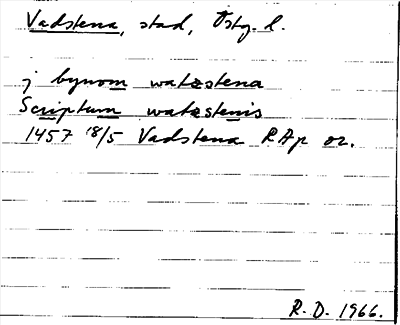 Vadstena, stad, Östg. l.
j bynom watzstena
Scriptum watzstenis
1457 18/5 Vadstena RAp or.
R. D. 1966.